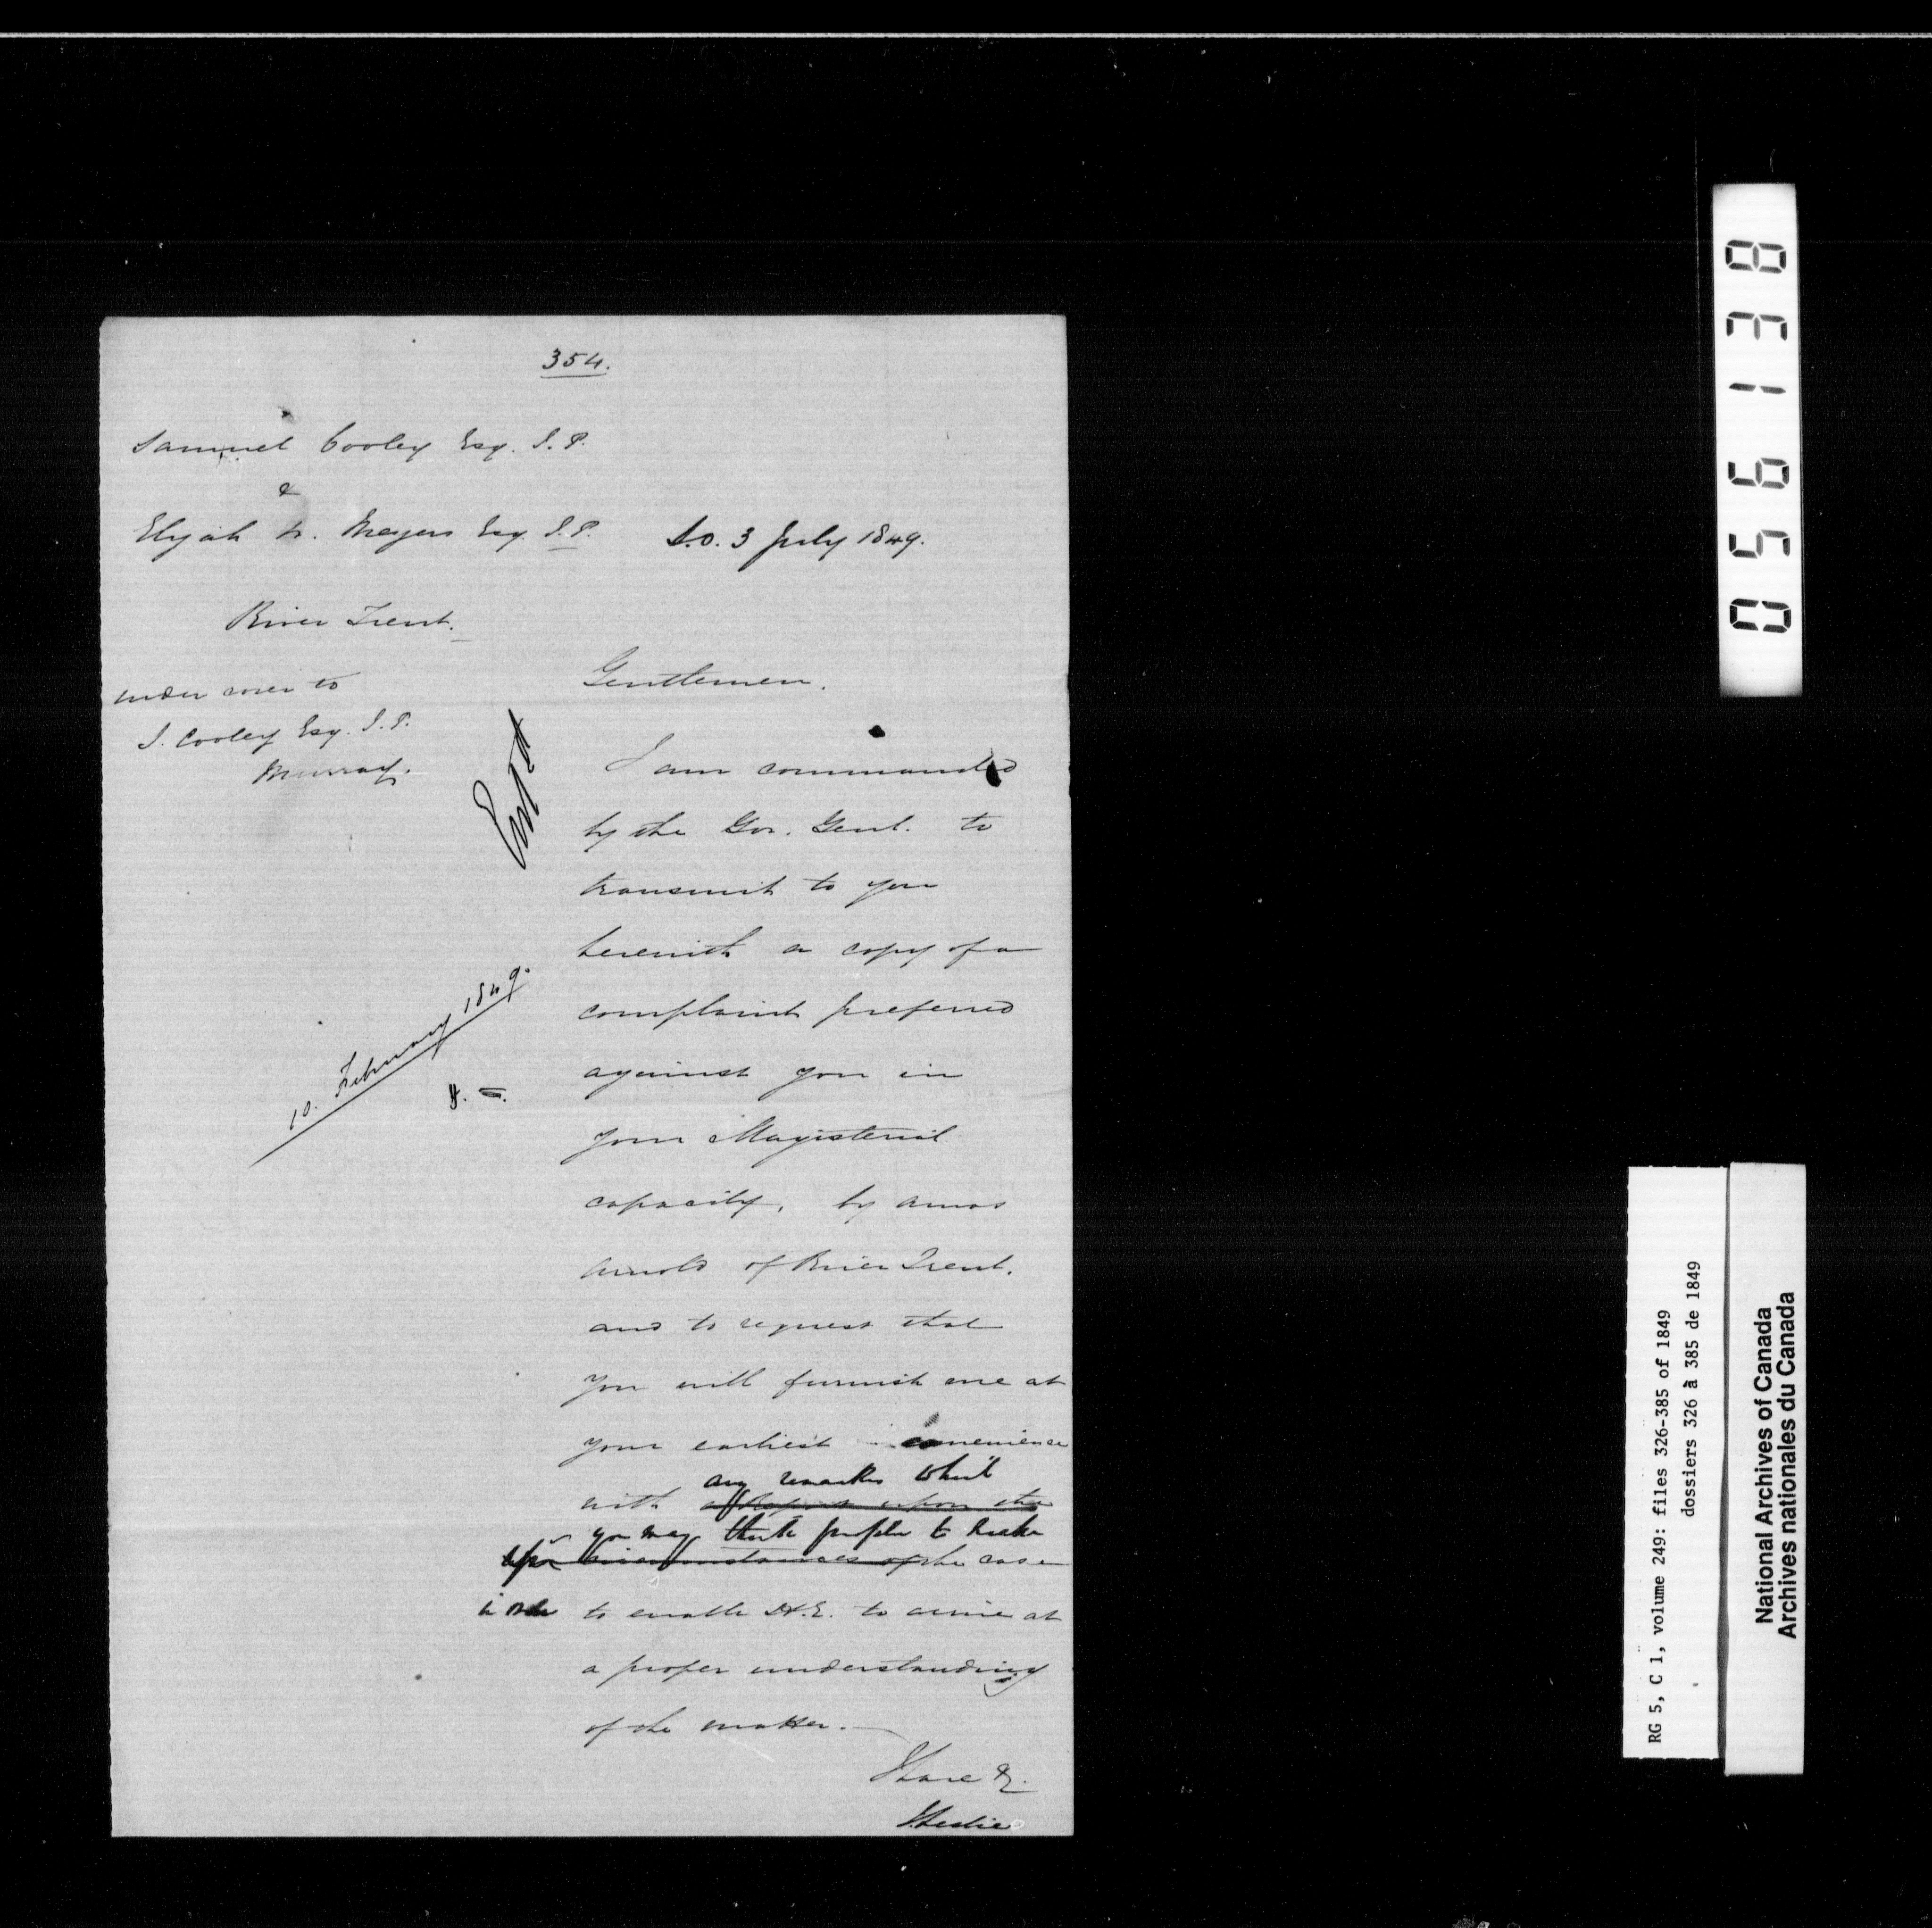 354.
Samuel Cooley Esq. J.P.
&
Elijah W. Meyers Esq. J.P.
S.O. 3 July 1849.
River Trent.
under cover to
S. Cooley Esq. J.P.
Murray.
Gentlemen.
Entd
I am commanded
by the Gov. Genl. to
transmit to you
herewith a copy of a
complaint preferred
10. February 1849.
against you in
your Magisterial
capacity, by Amos
Arnold of River Trent.
and to request that
you will furnish me at
your earliest convenience
any remarks which
with a Report upon the
you may think proper to make
upon circumstances of the case
in order to enable H.E. to arrive at
a proper understanding
of the matter.
I have &c.
J. Leslie
056138
RG 5, C 1, volume 249: files 326-385 of 1849
dossiers 326 à 385 de 1849
National Archives of Canada
Archives nationales du Canada